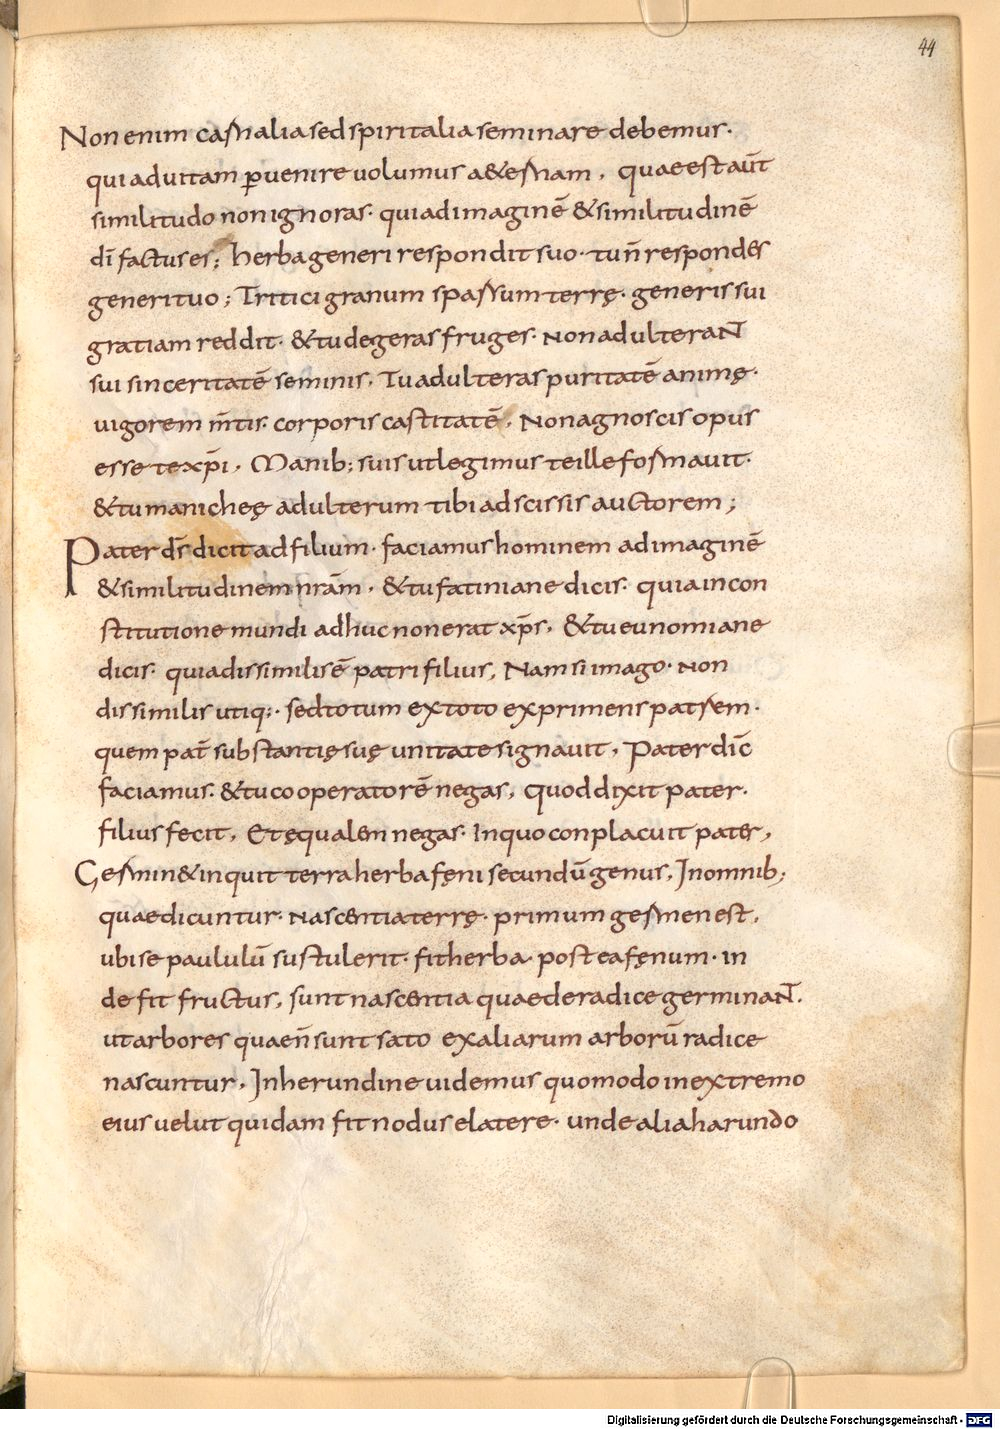 44
Non enim carnalia sed spiritalia seminare debemus.
qui ad uitam ꝑuenire uolumus a&ernam, quae est aūt
similitudo non ignoras· quia ad imaginē & similitudinē
dī factus es; herba generi respondit suo· tu n̄ respondes
generi tuo; Tritici granum sparsum terrę· generis sui
gratiam reddit· & tu degeras fruges· Non adulterant
sui sinceritatē seminis, Tu adulteras puritatē animę·
uigorem m̄tis· corporis castitatē, Non agnoscis opus
esse te xp̄i, Manib; suis ut legimus te ille formauit·
& tu manicheę adulterum tibi adscissis auctorem;
Pater d̄s dicit ad filium· faciamus hominem ad imaginē
& similitudinem nr̄am, & tu fatiniane dicis· quia in con
stitutione mundi adhuc non erat xp̄s, & tu eunomiane
dicis· quia dissimilis ē patri filius, Nam si imago· non
dissimilis utiq;· sed totum ex toto exprimens patrem·
quem pat̄ substantię suę unitate signauit, Pater dic̄
faciamus· & tu cooperatorē negas, quod dixit pater·
filius fecit, Et ęqualem negas· In quo conplacuit pater,
Germin& inquit terra herba fęni secundū genus, In omnib;
quae dicuntur· Nascentia terrę· primum germen est,
ubi se paululū sustulerit· fit herba· post ea fęnum· in
de fit fructus, sunt nascentia quae de radice germinant.
ut arbores quae n̄ sunt sato ex aliarum arborū radice
nascuntur, In herundine uidemus quomodo in extremo
eius uelut quidam fit nodus e latere· unde alia harundo
Digitalisierung gefördert durch die Deutsche Forschungsgemeinschaft - DFG